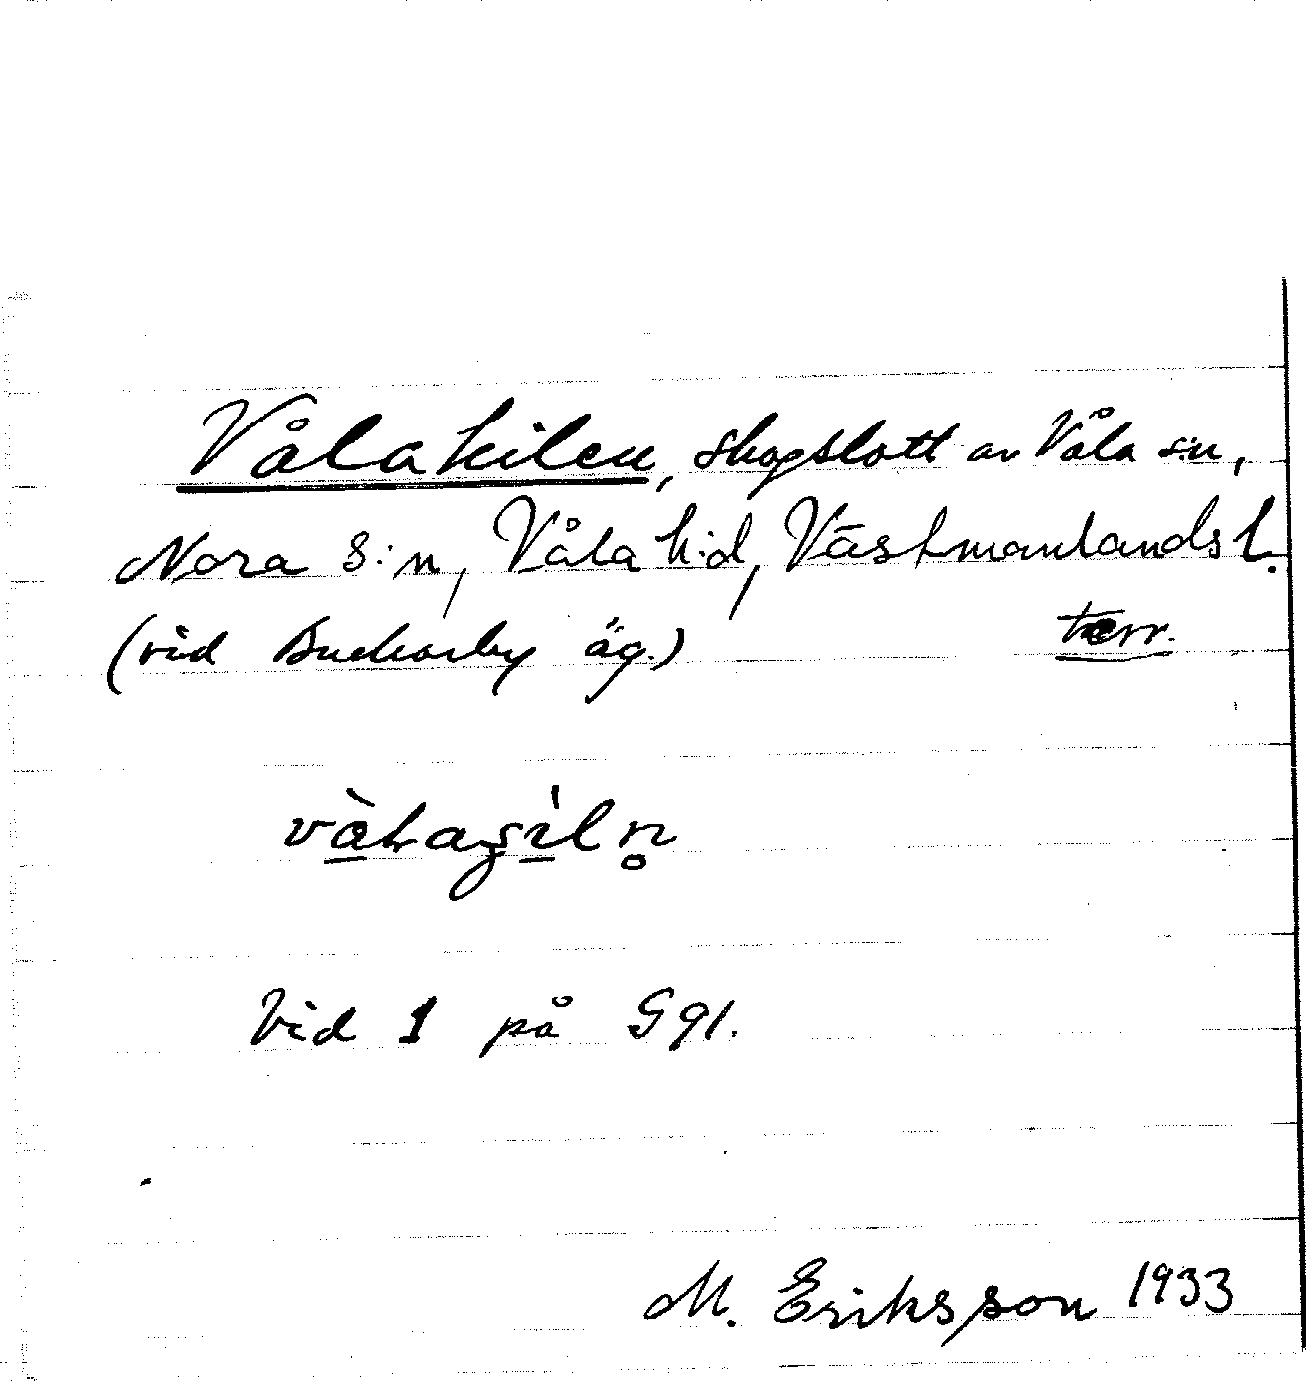 Vålakilen, skogslott av Våla s:n,
Nora s:n, Våla h:d, Västmanlands l.
(vid Buckarby äg.) terr.
Vid 1 på G 91.
M. Eriksson 1933